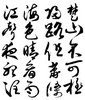 楚山不可極
歸路但蕭條
海色晴看雨
江聲夜聽潮